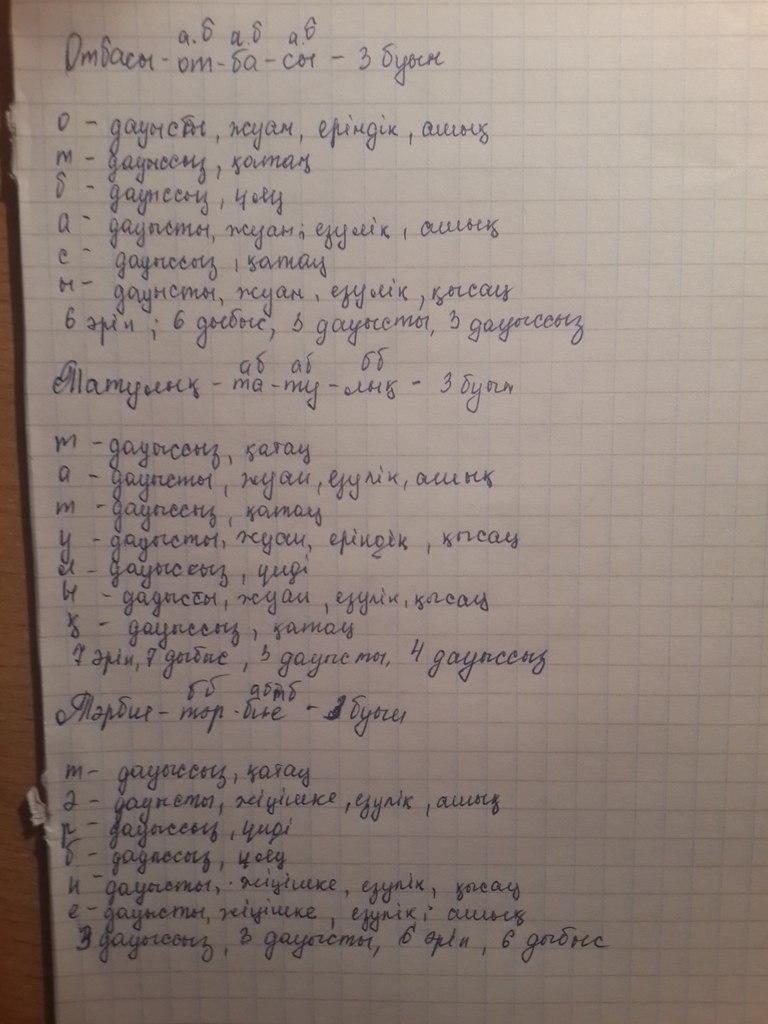 а.б а.б а.б
Отбасы - от - ба - сы - 3 буын
о - дауысты, жуан, еріндік, ашық
т - дауыссыз, қатаң
б - дауыссыз, ұяң
а - дауысты, жуан, езулік, ашық
с - дауыссыз, қатаң
ы - дауысты, жуан, езулік, қысаң
6 әріп; 6 дыбыс, 3 дауысты, 3 дауыссыз
аб аб бб
Татулық - та - ту - лық - 3 буын
т - дауыссыз, қатаң
а - дауысты, жуан, езулік, ашық
т - дауыссыз, қатаң
у - дауысты, жуан, еріндік, қысаң
л - дауыссыз, үнді
ы - дауысты, жуан, езулік, қысаң
қ - дауыссыз, қатаң
7 әріп, 7 дыбыс, 3 дауысты, 4 дауыссыз
бб
Тәрбие - тәр - бие - буын
т - дауыссыз, қатаң
ә - дауысты, жіңішке, езулік, ашық
р - дауыссыз, үнді
б - дауыссыз, ұяң
и - дауысты, жіңішке, езулік, қысаң
е - дауысты, жіңішке, езулік, ашық
3 дауыссыз, 3 дауысты, 6 әріп, 6 дыбыс